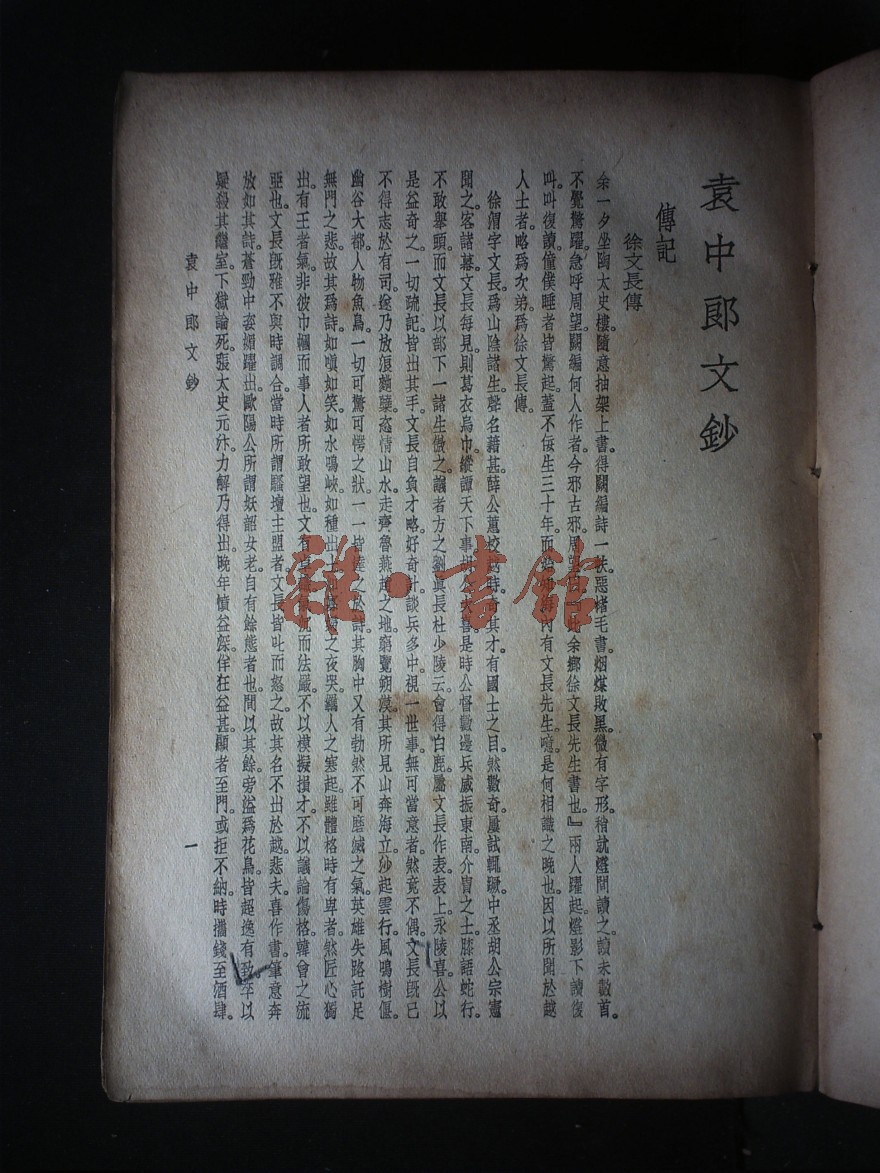 袁中郎文鈔
傳記
徐文長傳
余一夕坐陶太史樓。隨意抽架上書。得闕編詩一帙。惡楮毛書。烟煤敗黑。微有字形。稍就燈間讀之。讀未數首。
不覺驚躍。急呼周望。闕編何人作者。今邪古邪。周望曰此余鄉徐文長先生書也』兩人躍起。燈影下讀復
叫。叫復讀。僮僕睡者皆驚起。蓋不佞生三十年。而始知海內有文長先生。噫是何相識之晚也。因以所聞於越
人士者。略爲次弟。爲徐文長傳。
徐渭字文長。爲山陰諸生。聲名藉甚。薛公蕙校越時。奇其才有國士之目。然數奇屢試輒蹶。中丞胡公宗憲
聞之。客諸幕。文長每見。則葛衣烏巾。縱譚天下事。胡公大喜。是時公督數邊兵。威振東南。介冑之士。膝語蛇行。
不敢舉頭。而文長以部下一諸生傲之。議者方之劉眞長杜少陵云。會得白鹿屬文長作表。表上。永陵喜。公以
是益奇之。一切疏記。皆出其手。文長自負才略。好奇計。談兵多中。視一世事。無可當意者。然竟不偶。文長旣已
不得志於有司。遂乃放浪麯糵。恣情山水。走齊魯燕趙之地。窮覽朔漠。其所見山奔海立。沙起雲行。風鳴樹偃。
幽谷大都。人物魚鳥。一切可驚可愕之狀。一一皆達之於詩。其胸中又有勃然不可磨滅之氣。英雄失路託足
無門之悲。故其爲詩。如嗔如笑。如水鳴峽。如種出土如寡婦之夜哭。羈人之寒起。雖體格時有卑者。然匠心獨
出。有王者氣。非彼巾幗而事人者所敢望也。文有卓識氣沉而法嚴。不以模擬損才。不以議論傷格。韓曾之流
亞也。文長旣雅不與時調合。當時所謂騷壇主盟者。文長皆叱而怒之。故其名不出於越。悲夫。喜作書。筆意奔
放如其詩。蒼勁中姿媚躍出。歐陽公所謂妖韶女老。自有餘態者也。間以其餘。旁溢爲花鳥。皆超逸有致。卒以
疑殺其繼室。下獄論死。張太史元汴。力解乃得出。晚年憤益深。佯狂益甚。顯者至門。或拒不納。時攜錢至酒肆。
袁中郎文鈔
一
雜·書館